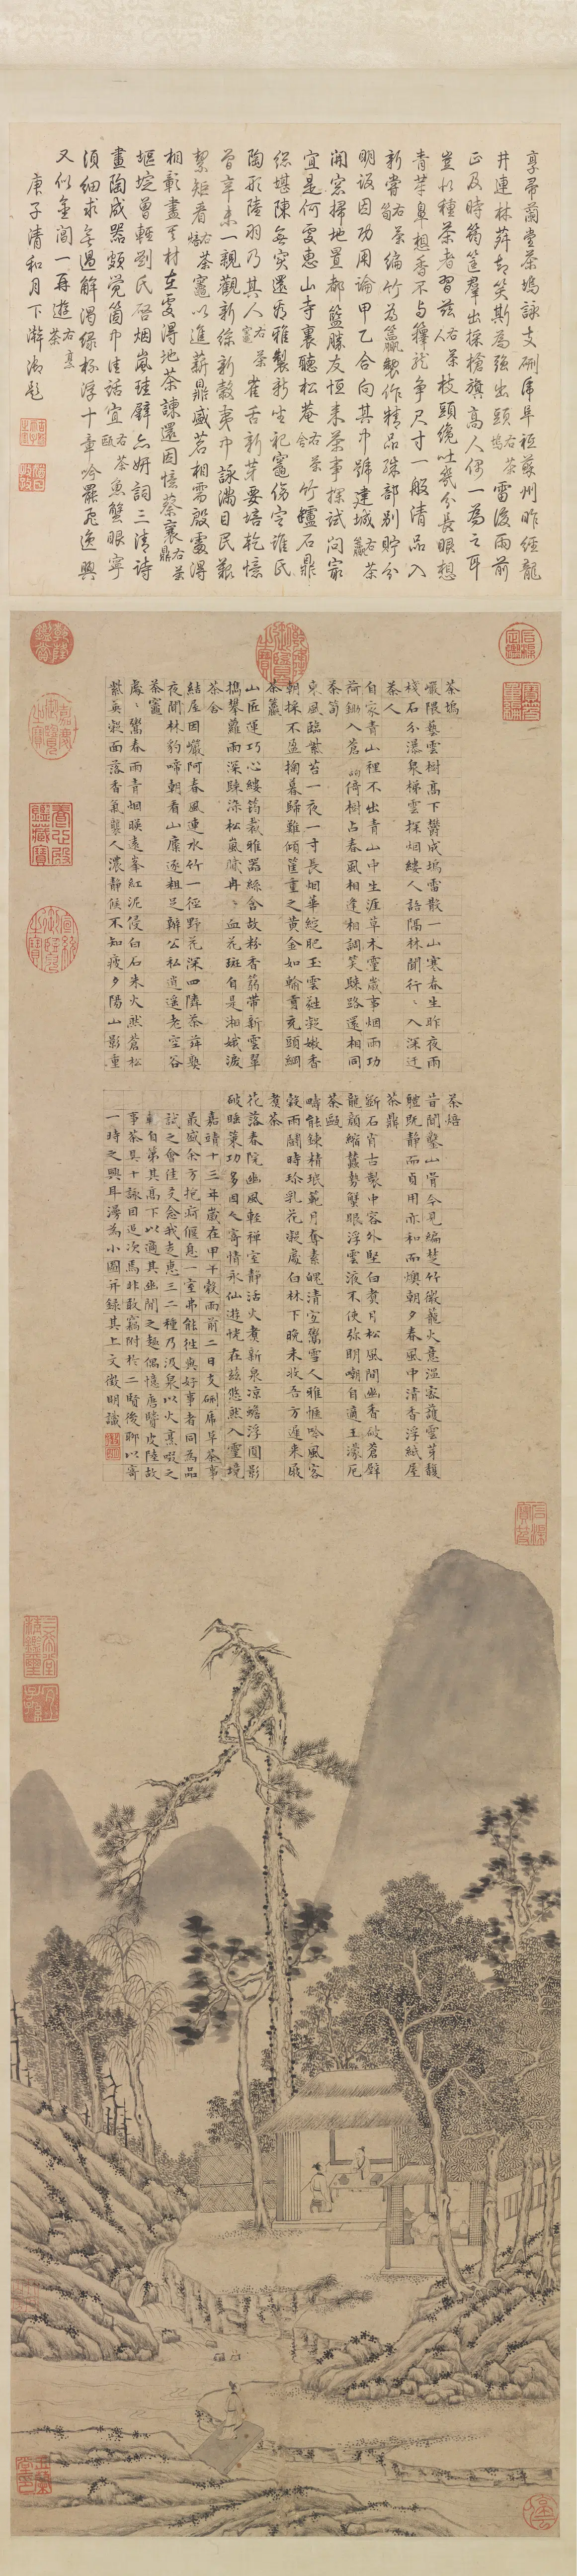 享帚蘭堂茶塢詠支硎虎阜祗蘇州昨經龍
井連林蒔却笑斯為強出頭右茶塢雷後雨前
正及時筠筐群出採槍旗高人偶一為之耳
豈以種茶者習茲右茶人枝頭纔吐幾分長眼想
青芽鼻想香不与籜龍爭尺寸一般清品入
新嘗右茶筍編竹為籯製作精品殊部別貯分
明設因功用論甲乙合向其中號建城右茶籯
開窓掃地置都籃勝友恒来茶事探試問最
宜是何處惠山寺裏聽松菴右茶舍竹罏石鼎
總堪陳無實還為雅製新生祀竈傷定誰氏
陶形陸羽乃其人右茶竈雀舌新芽要焙乾憶
曾辛未一親觀新絲新穀夷中詠滿目民艱
絜矩看右茶焙茶竈以進薪鼎盛茗相需殷處得
相彰盡美材在處得地茶諫還因憶蔡襄右茶鼎
曾輕劉氏居烟嵐珪璧六妍詞三清詩
畫陶成器頗覺箇中佳話宜右茶甌魚蟹眼寧
須細求無過解渴緑杯浮十章吟罷逸興
又似重閣一再遊右煮茶
庚子清和月下澣御題
茶塢
巖隈藝雲樹高下鬱成塢雷散一山寒春生昨夜雨
棧石分瀑泉梯雲探烟縷人語隔林聞行〻入深迂
茶人
自家青山裡不出青山中生涯草木靈歲事烟雨功
荷鋤入蒼靄倚樹占春風相逢相調笑歸路還相同
茶筍
東風臨紫苔一夜一寸長烟華綻肥玉雲蕤凝嫩香
朝採不盈掬暮歸難傾筐重之黃金如輸貢充頭綱
茶籯
山匠運巧心縷筠裁雅器絲含故粉香篛帶新雲翠
攜攀蘿雨深歸染松嵐膩冉〻血花斑自是湘娥淚
茶舍
結屋因巖阿春風連水竹一徑野花深四隣茶荈熟
夜聞林豹啼朝看山麋逐粗足辦公私逍遙老空谷
茶竈
處〻鬻春雨青烟映遠峯紅泥侵白石朱火然蒼松
紫英凝面落香氣襲人濃靜候不知疲夕陽山影重
茶焙
昔聞鑿山骨今見編楚竹微籠火意溫密護雲芽馥
體既靜而貞用亦和而燠朝夕春風中清香浮紙屋
茶鼎
斲石肖古製中容外堅白煮月松風間幽香破蒼壁
龍顏縮蠢勢蟹眼浮雲液不使彌明嘲自適王濛厄
茶甌
疇能鍊精珉範月奪素魄清宜鬻雪人雅愜吟風客
穀雨鬭時珍乳花凝處白林下晚未收吾方遲來屐
煮茶
花落春院幽風輕禪室靜活火煮新泉涼蟾浮圓影
破睡策功多因人寄情永仙遊恍在茲悠然入靈境
嘉靖十三年歲在甲午穀雨前二日支硎虎阜茶事
最盛余方抱疴偃息一室弗能往與好事者同為品
試之會佳友念我走惠三二種乃汲泉以火烹啜之
輒自第其高下以適其幽閒之趣偶憶唐賢皮陸故
事茶具十詠因追次焉非敢竊附於二賢後聊以寄
一時之興耳漫為小圖并錄其上文徵明識
石渠定鑑
寶笈重編
乾隆御覽之寶
乾隆鑑賞
嘉慶御覽之寶
養心殿鑑藏寶
宣統御覽之寶
石渠寶笈
三希堂精鑑璽
宜子孫